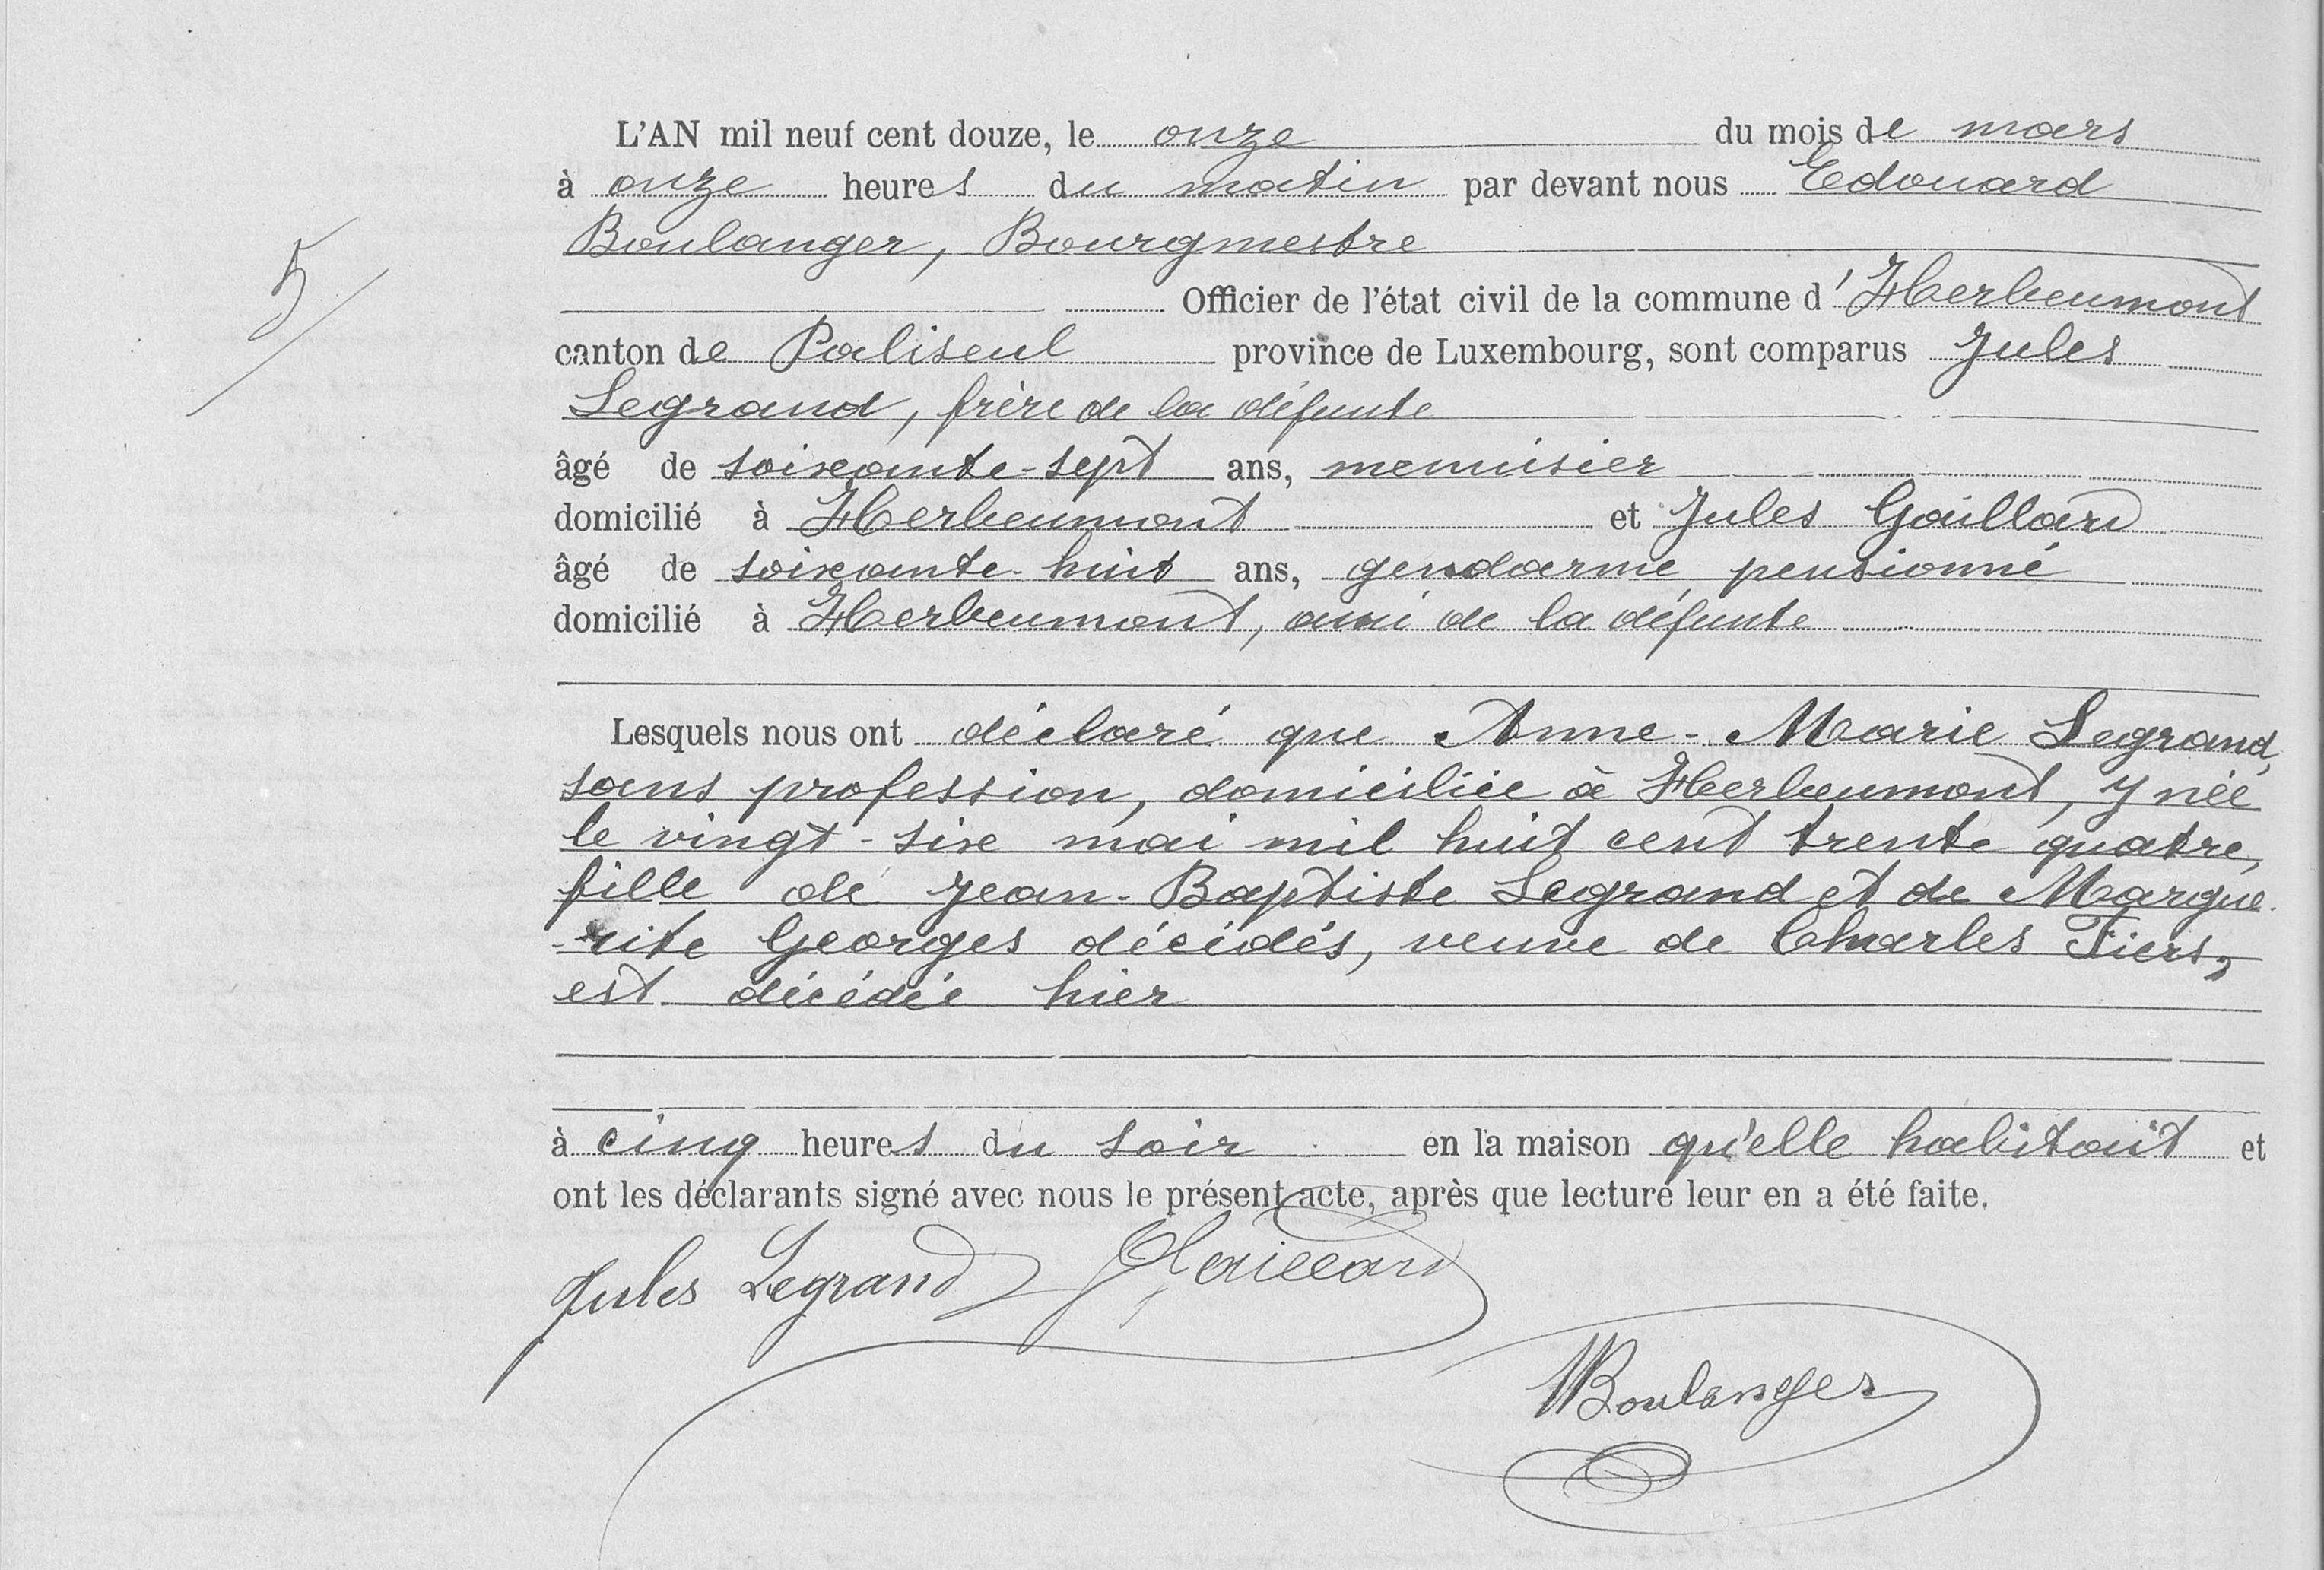 L'AN mil neuf cent douze, le onze du mois de mars
à onze heures du matin par devant nous Edouard
Boulanger, Bourgmestre
5/
Officier de l'état civil de la commune d'Herbeumont
canton de Paliseul province de Luxembourg, sont comparus Jules
Legrand, frère de la défunte
âgé de soixante-sept ans, menuisier
domicilié à Herbeumont et Jules Gaillard
âgé de soixante-huit ans, gendarme pensionné
domicilié à Herbeumont, ami de la défunte
Lesquels nous ont déclaré que Anne-Marie Legrand,
sans profession, domiciliée à Herbeumont, y née
le vingt-six mai mil huit cent trente quatre,
fille de Jean-Baptiste Legrand et de Margue-
-rite Georges décédés, veuve de Charles Tiers,
est décédée hier
à cinq heures du soir en la maison qu'elle habitait et
ont les déclarants signé avec nous le présent acte, après que lecture leur en a été faite.
Jules Legrand JGaillard
Boulanger